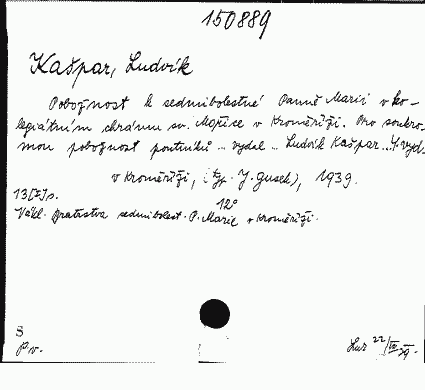 150889
Kašpar, Ludvík
Pobožnost k sedmibolestné Panně Marii v ko-
legiátním chrámu sv. Mořice v Kroměříži. Pro soukro-
mou pobožnost poutníků ... vydal ... Ludvík Kašpar...
v Kroměříži, (typ. J. Gusek), 1939.
13[I]s.
12°
Nákl. Bratrstva sedmibolest. P. Marie v Kroměříži.
S